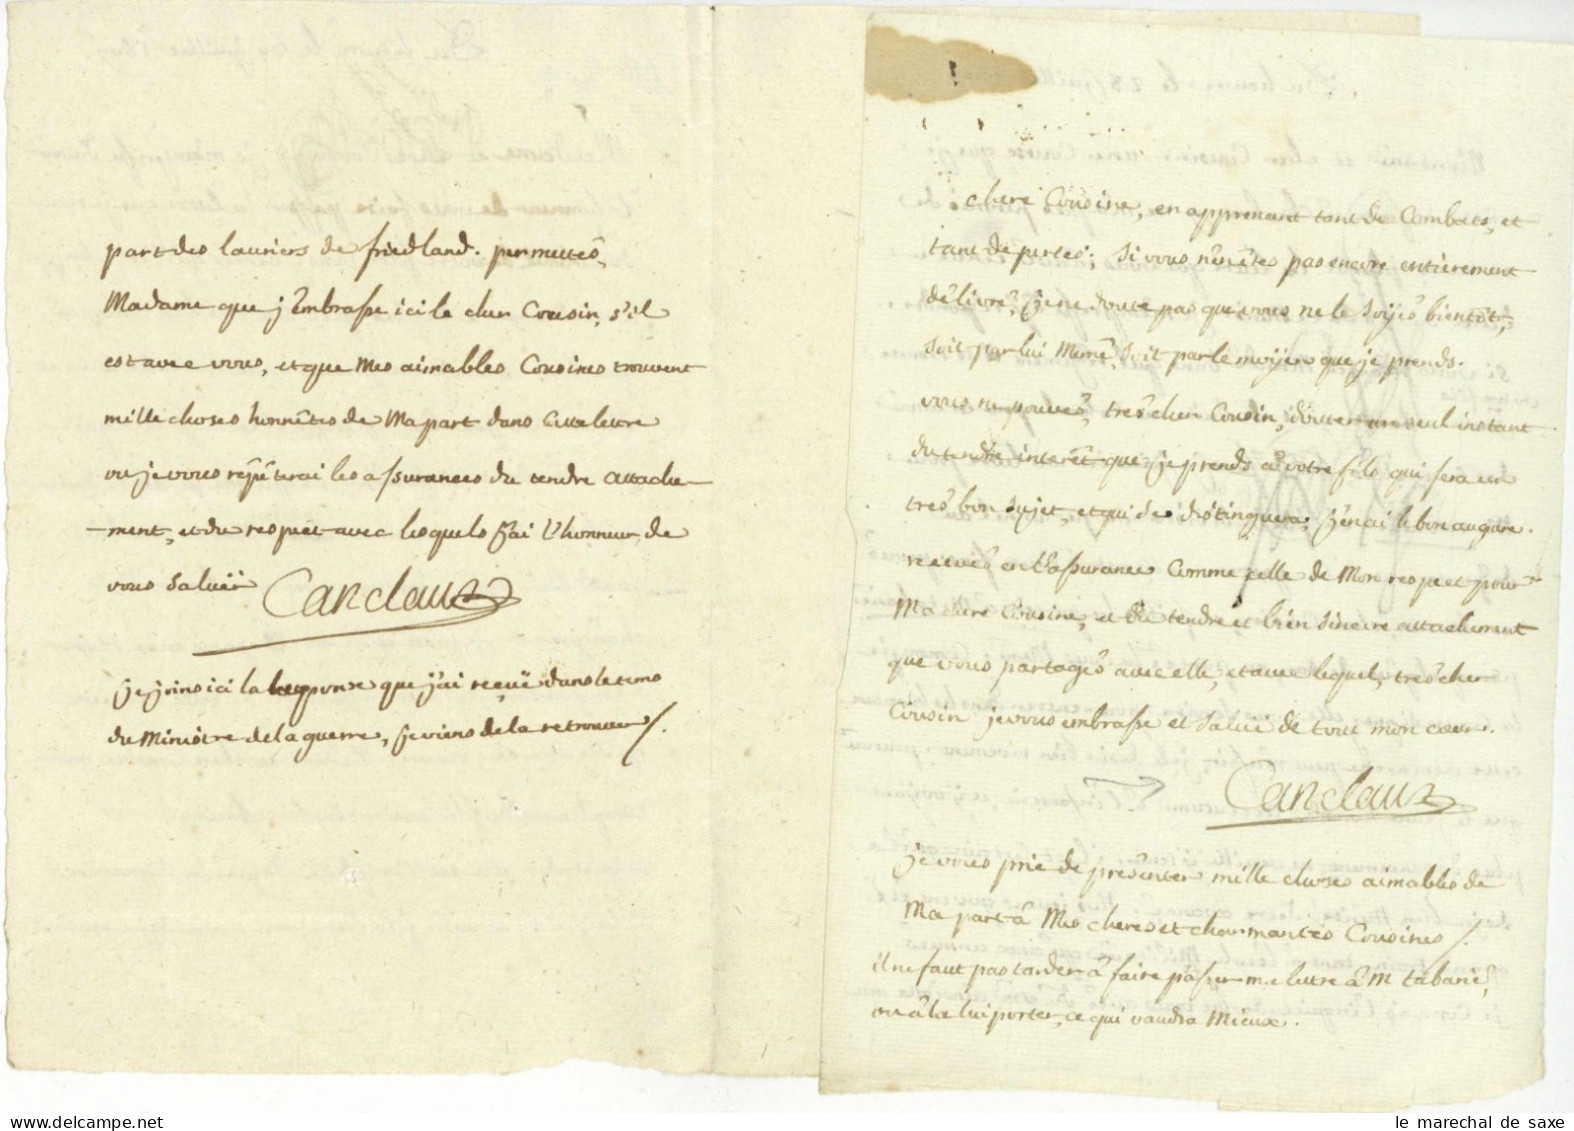 part des lauriers de friedland. permettés,
Madame que j'embrasse ici le cher Cousin, s'il
est avec vous, et que Mes aimables Cousines trouvent
mille choses honnêtes de Ma part dans cette lettre
ou je vous répéterai les assurances du tendre attache-
-ment, et du respect avec lesquels j'ai l'honneur de
vous saluër
Canclaux
je joins ici la response que j'ai reçuë dans le tems
du Ministre de la guerre, je viens de la retrouver /.
chere Cousine, en apprenant tant de Combats, et
tant de pertes; si vous n'en êtes pas encore entièrement
délivré, je ne doute pas que vous ne le soijés bientôt,
soit par lui Même, soit par le moijen que je prends.
vous ne pouvés, très cher Cousin, douter un seul instant
du tendre interêt que je prends à votre fils qui sera un
très bon sujet, et qui se distinguera, j'en ai le bon augure.
recevés en l'assurance comme celle de Mon respect pour
Ma chere Cousine, et du tendre et bien sincere attachement
que vous partagés avec elle, et avec lequel, très cher
Cousin je vous embrasse et saluë de tout mon cœur.
Canclaux
je vous prie de présenter mille choses aimables de
Ma part à Mes cheres et charmantes Cousines /.
il ne faut pas tarder à faire passer ma lettre à M tabarié,
ou à la lui porter, ce qui vaudra Mieux.
www.delcampe.net
le marechal de saxe